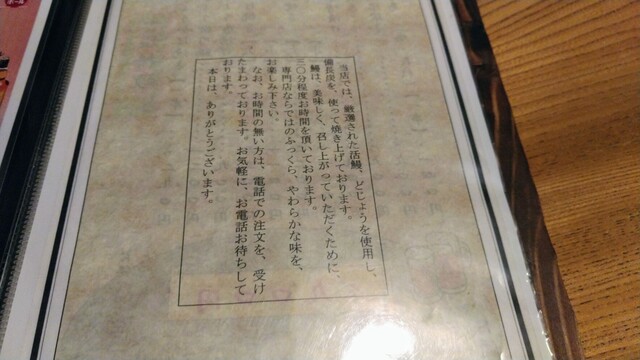 当店では、厳選された活鰻、どじょうを使用し、
備長炭を、使って焼き上げております。
鰻は、美味しく、召し上がっていただくために、
三〇分程度お時間を頂いております。
専門店ならではのふっくら、やわらかな味を、
お楽しみ下さい。
なお、お時間の無い方は、電話での注文を、受け
たまわっております。お気軽に、お電話お待ちして
おります。
本日は、ありがとうございます。